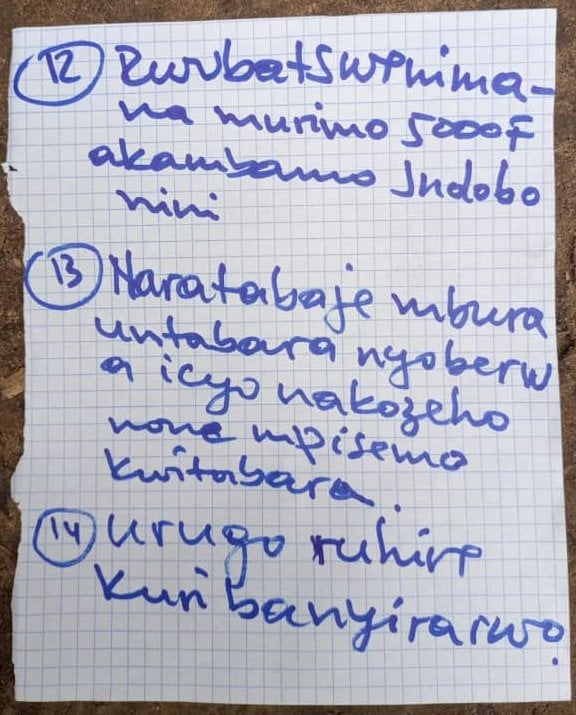 12 RwubatswPnima-
na murimo 5000F
akambamo Indobo
nini
13 Naratabaje mbura
untabara nyoberw
a icyo nakozeho
none mpisemo
kwitabara.
14 urugo ruhire
kuri banyirarwo.